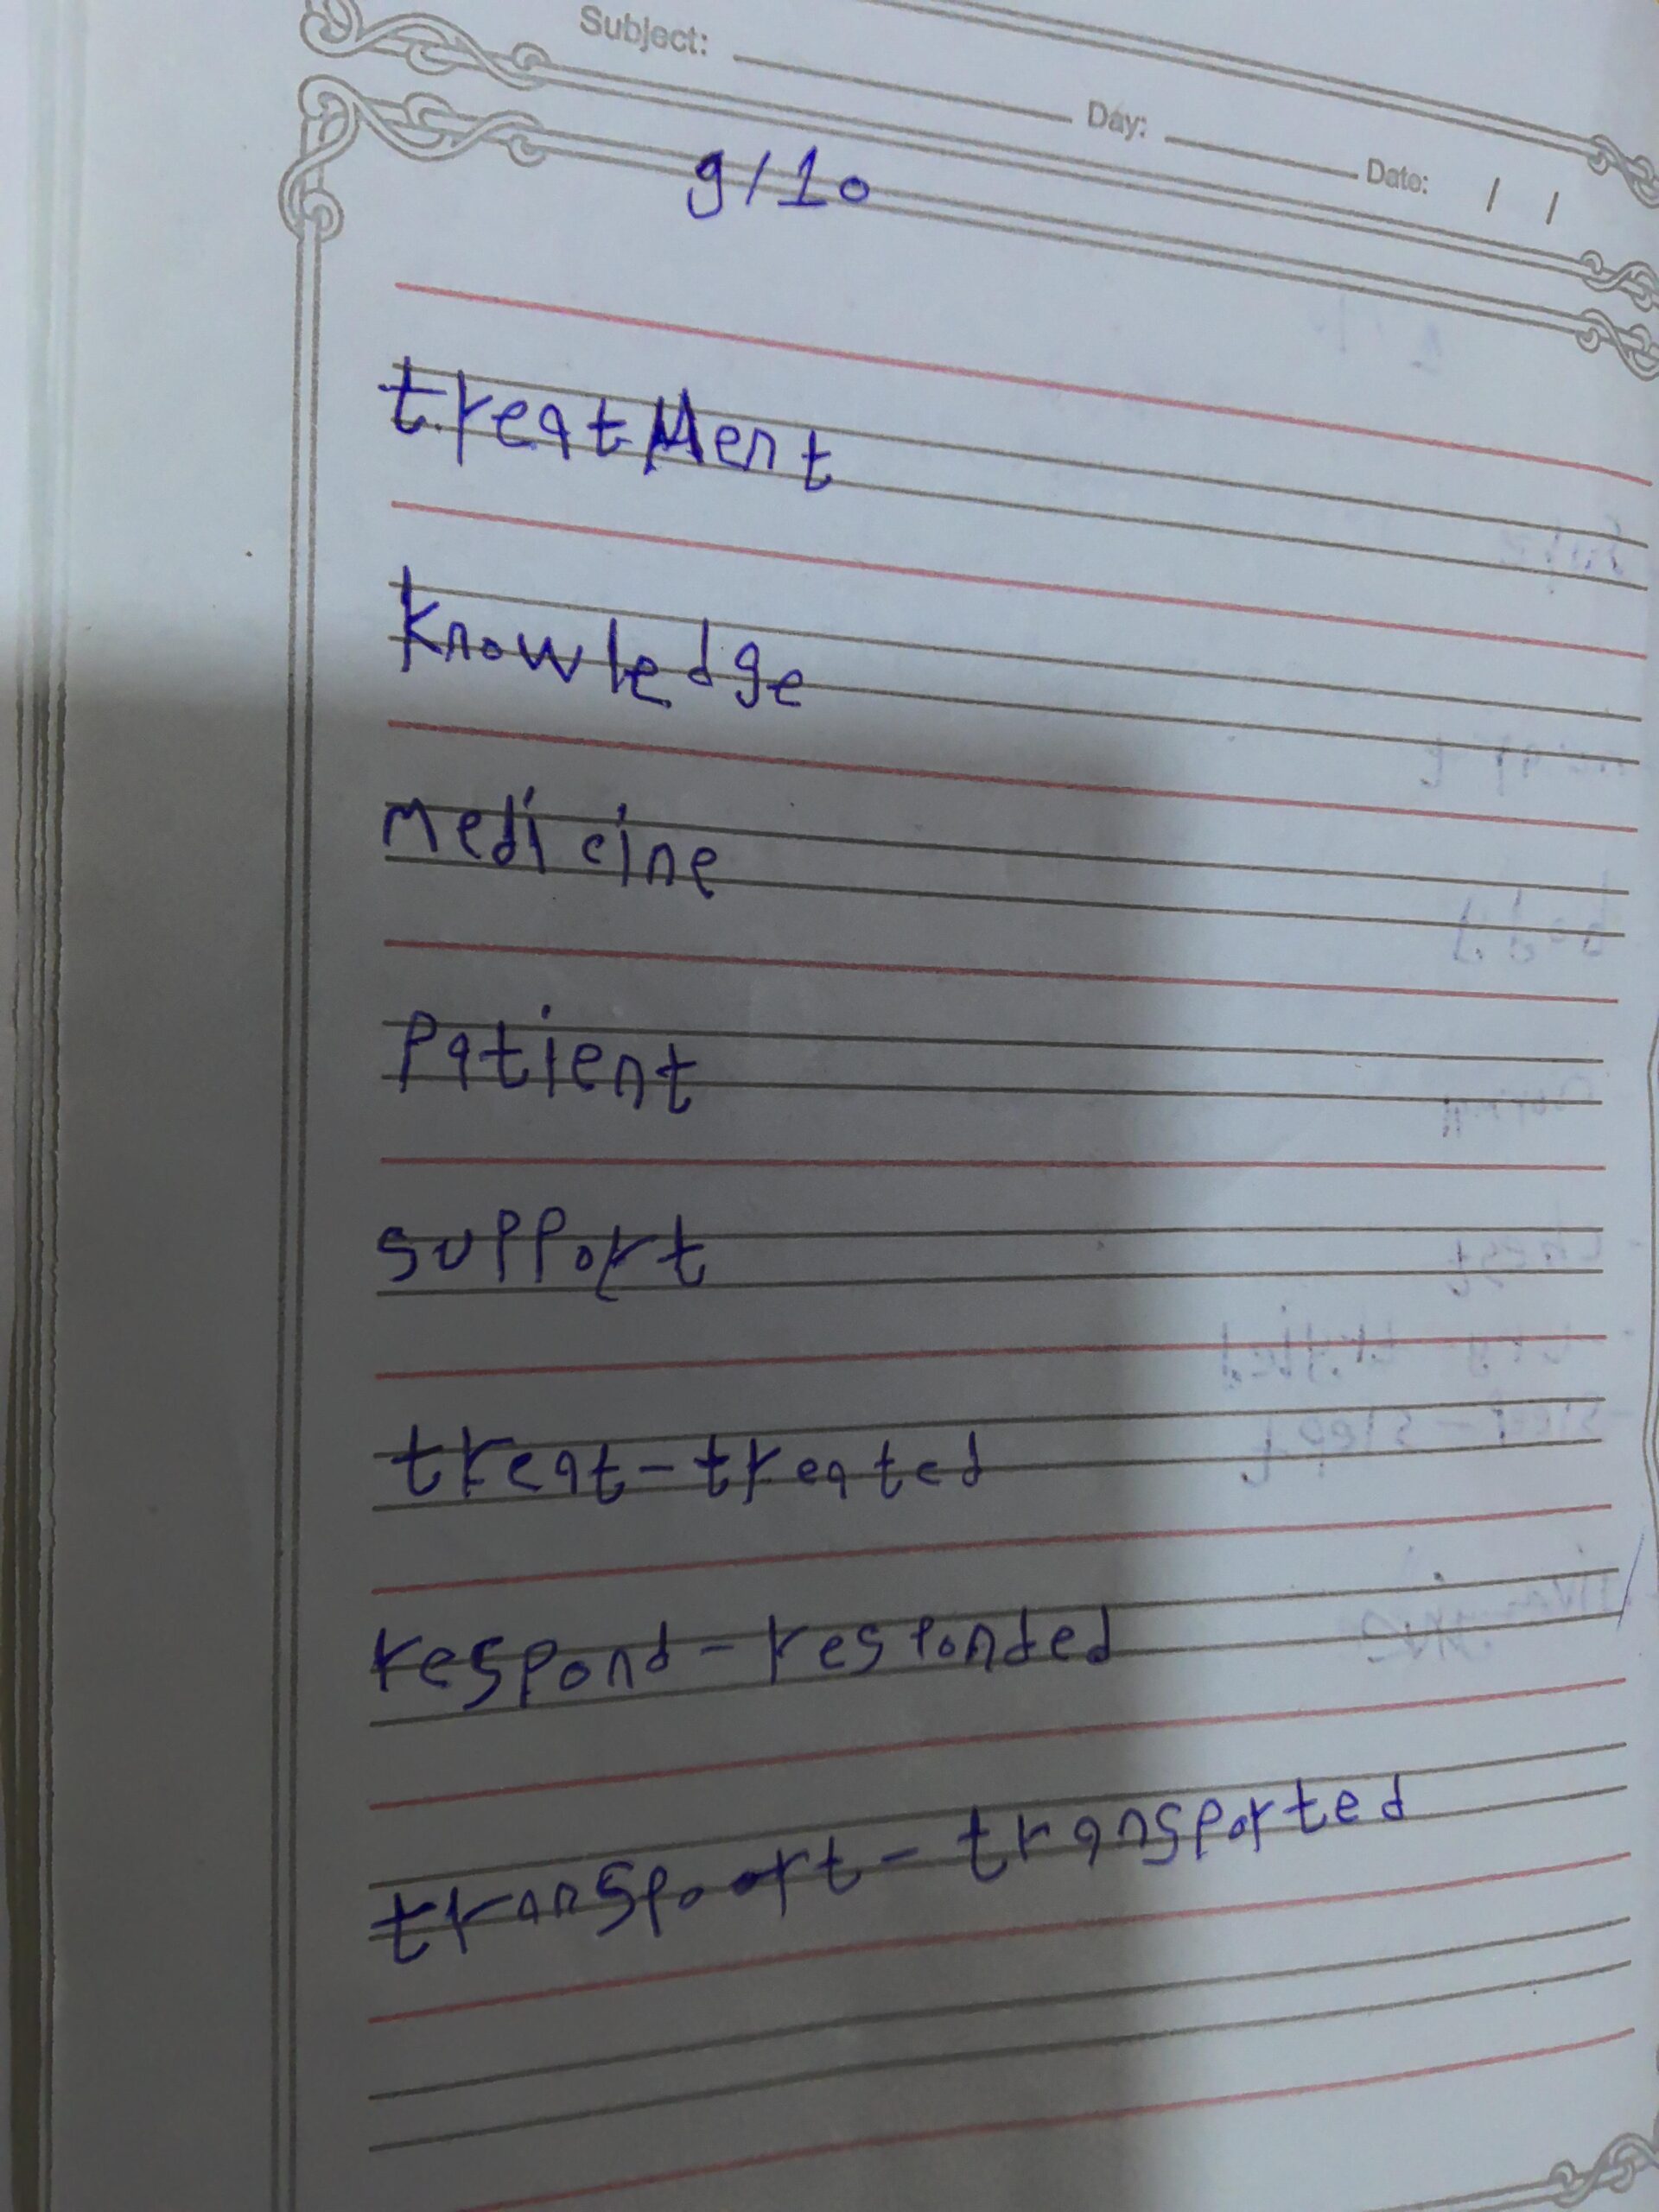 Subject:
Day:
Date: / /
9/10
treatMent
knowledge
medicine
Patient
support
treat-treated
respond-responded
transpoort-transported